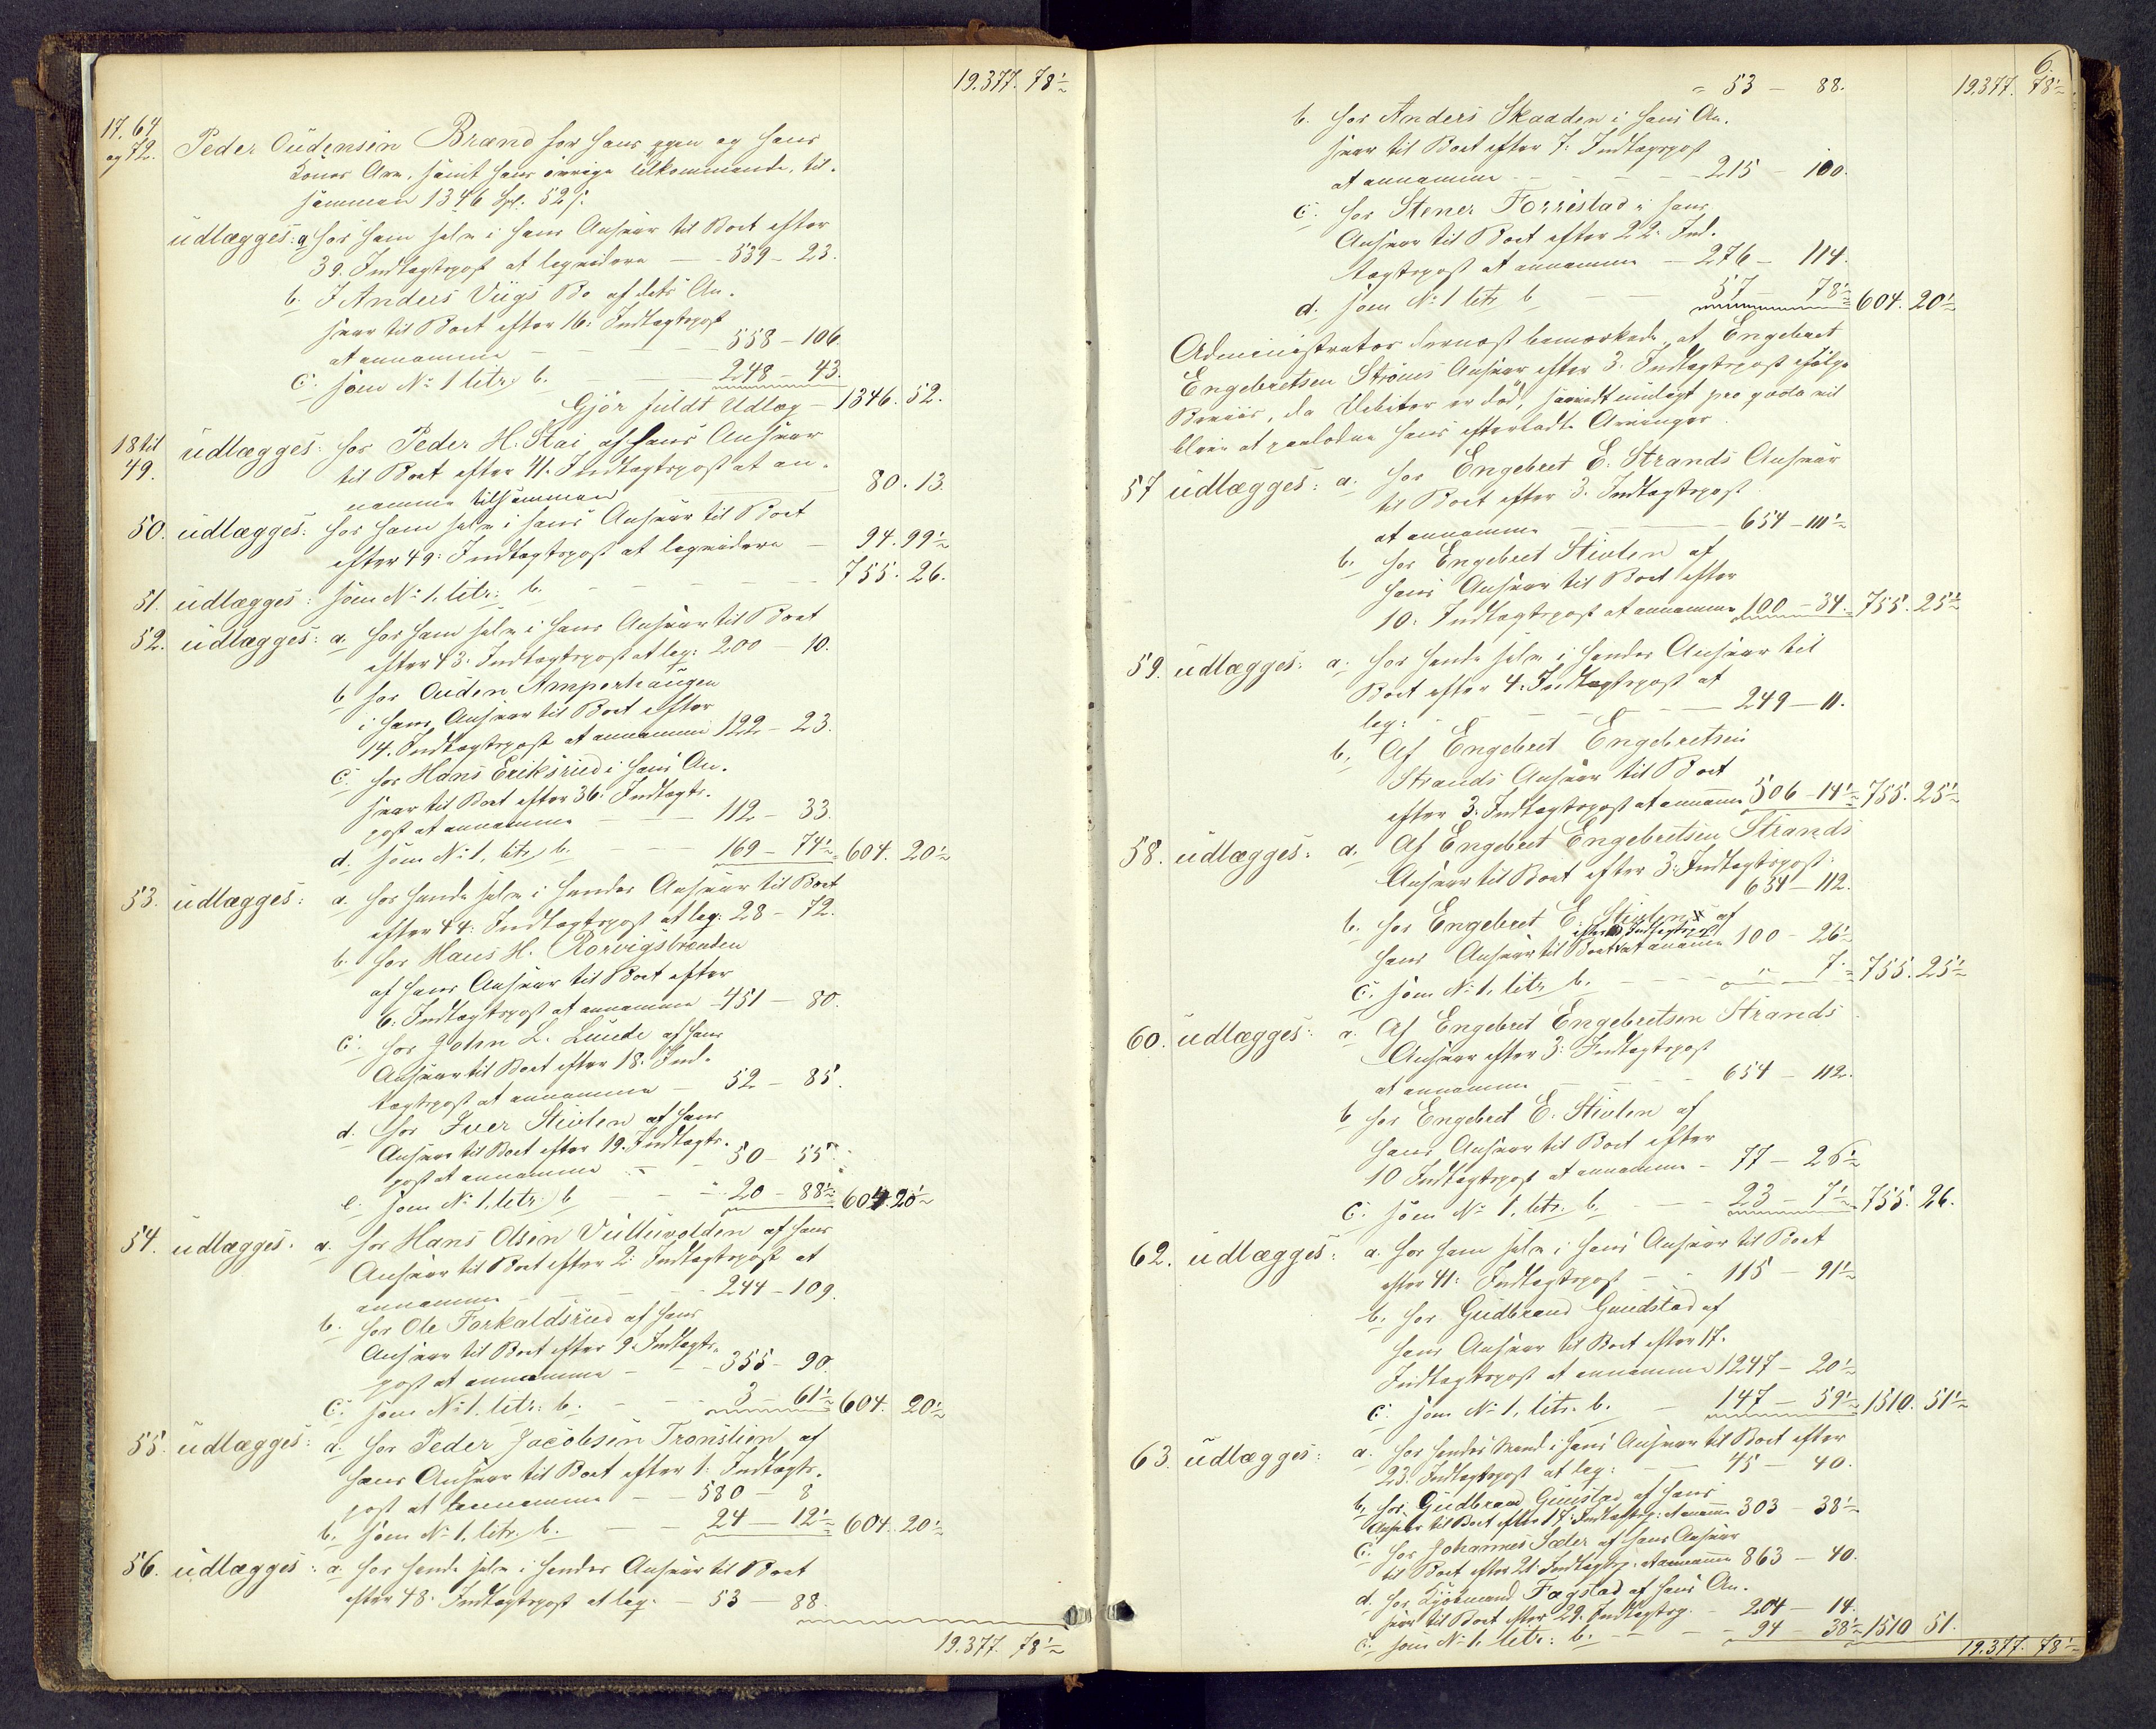 19.377. 78½
17. 64
og 72. Peder Oudensen Brænd for hans egen og hans
Kones Arv, samt hans øvrige tilkommende, til-
sammen 1346 Spl. 52 s:
udlægges: a hos ham selv i hans Ansvar til Boet efter
39. Indtægtspost at leqvidere — 539 - 23.
b. I Anders Viigs Bo af dets An-
svar til Boet efter 16: Indtægtspost
at annamme — 558 - 106.
c. som No 1 litr. b. — 248 - 43.
Gjør fuldt Udlæg — 1346. 52.
18 til
49. udlægges: hos Peder H. Stai af hans Ansvar
til Boet efter 41. Indtægtspost at an-
namme tilsammen — 80. 13.
50. udlægges: hos ham selv i hans Ansvar til Boet
efter 49: Indtægtspost at leqvidere — 94. 99½
51. udlægges: som No 1. litr: b. — 755. 26.
52. udlægges: a. hos ham selv i hans Ansvar til Boet
efter 43: Indtægtspost at leq: 200 - 10.
b hos Ouden Amperhaugen
i hans Ansvar til Boet efter
14. Indtægtspost at annamme 122 - 23.
c. hos Hans Eriksrud i hans An-
svar til Boet efter 36: Indtægts-
post at annamme — 112 - 33.
d. som No 1. litr. b. — 169 - 74½ 604. 20½
53. udlægges: a. hos hende selv i hendes Ansvar til Boet
efter 44: Indtægtspost at leq: 28 - 72.
b. hos Hans H. Rorvigsbrænden
af hans Ansvar til Boet efter
6: Indtægtspost at annamme 451 - 80.
c. hos John L. Lunde af hans
Ansvar til Boet efter 18: Ind-
tægtspost at annamme — 52 - 85.
d. hos Iver Stivlen af hans
Ansvar til Boet efter 19. Indtægts-
post at annamme — 50 - 55.
e. som No 1. litr. b — 20 - 88½ 604. 20½
54. udlægges. a. hos Hans Olsen Vulluvolden af hans
Ansvar til Boet efter 2: Indtægtspost at
annamme — 244 - 109.
b. hos Ole Torkaldsrud af hans
Ansvar til Boet efter 9. Indtægts-
post at annamme — 355 - 90.
c. som No 1. litr: b. — 3 - 61½ 604. 20½
55. udlægges: a. hos Peder Jacobsen Tronslien af
hans Ansvar til Boet efter 1. Indtægts-
post at annamme — 580 - 8
b. som No 1. litr. b. — 24 - 12½ 604. 20½
56. udlægges: a. hos hende selv i hendes Ansvar til Boet
efter 48: Indtægtspost at leq. — 53 - 88.
19.377. 78½
6.
= 53 - 88. 19.377. 78½
b. hos Anders Skaaden i hans An-
svar til Boet efter 7. Indtægtspost
at annamme — 215 - 100.
c. hos Stener Forrestad i hans
Ansvar til Boet efter 22. Ind-
tægtspost at annamme — 276 - 114.
d. som No 1 litr. b — 57 - 78½ 604. 20½
Administrator dernæst bemærkede, at Engebret
Engebretsen Strøms Ansvar efter 3. Indtægtspost ifølge
Beviis, da Debitor er død, saavidt muligt pro qvota vil
blive at paalodne hans efterladte Arvinger.
57 udlægges: a. hos Engebret E. Strands Ansvar
til Boet efter 3. Indtægtspost
at annamme — 654 - 111½
b. hos Engebret Stivlen af
hans Ansvar til Boet efter
10. Indtægtspost at annamme 100 - 34. 755. 25½
59. udlægges: a. hos hende selv i hendes Ansvar til
Boet efter 4. Indtægtspost at
leq: — 249 - 11.
b. Af Engebret Engebretsen
Strands Ansvar til Boet
efter 3: Indtægtspost at annamme 506 - 14½ 755. 25½
58. udlægges: a. Af Engebret Engebretsen Strands
Ansvar til Boet efter 3: Indtægtspost:
654 - 112.
b. hos Engebret E. Stivlen af
efter 10 Indtægtspost
hans Ansvar til Boet at annamme 100 - 26½
c. som No 1. litr. b. — " - 7. 755. 25½
60. udlægges: a. Af Engebret Engebretsen Strands
Ansvar efter 3: Indtægtspost
at annamme — 654 - 112.
b hos Engebret E. Stivlen af
hans Ansvar til Boet efter
10 Indtægtspost at annamme — 77 - 26½
c. som No 1. litr. b. — 23 - 7½ 755. 26.
62. udlægges: a. hos ham selv i hans Ansvar til Boet
efter 41: Indtægtspost — 115 - 91½
b. hos Gudbrand Guudstad af
hans Ansvar til Boet efter 17.
Indtægtspost at annamme 1247 - 20½
c. som No 1, litr. b. — 147 - 59½ 1510. 51½
63. udlægges: a. hos hendes Mand i hans Ansvar til Boet efter
23. Indtægtspost at leq: — 45 - 40.
b. hos Gudbrand Guustad af hans
Ansvar til Boet efter 17. Indtægtsp: at annamme 303 - 38½
c. hos Johannes Sæter af hans Ansvar
til Boet efter 21. Indtægtsp. at annamme 863 - 40.
d. hos Kjøbmand Fagstad af hans An-
svar til Boet efter 29. Indtægtsp. — 204 - 14.
e. som No 1. litr: b. — 94 - 38½ 1510 51.
19.377. 78½